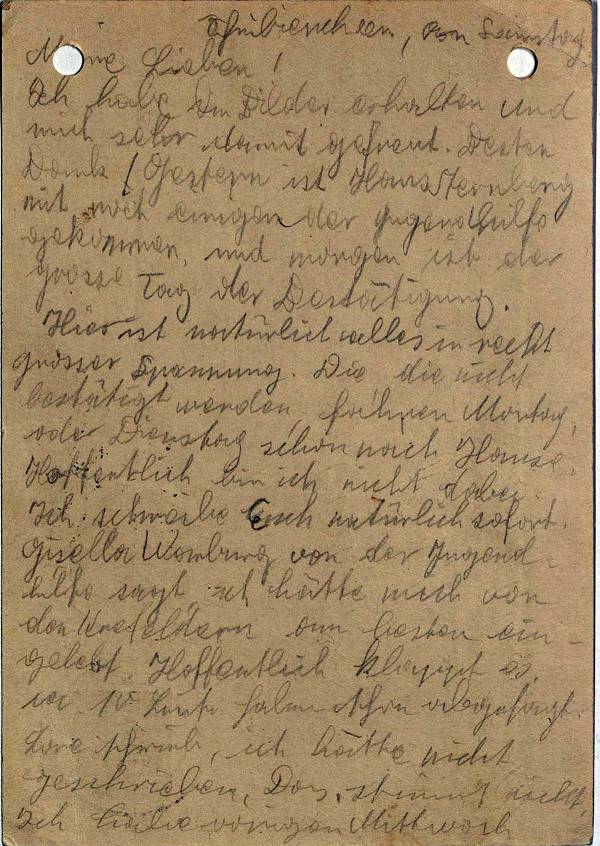 Schniebinchen, den Samstag
Meine Lieben!
Ich habe die Bilder erhalten und
mich sehr damit gefreut. Besten
Dank! Gestern ist Hans Sternberg
mit noch einigen der Jugendhilfe
gekommen, und morgen ist der
grosse Tag der Bestätigung.
Hier ist natürlich alles in recht
grosser Spannung. Die die nicht
bestätigt werden, fahren Montag
oder Dienstag schon nach Hause.
Hoffentlich bin ich nicht dabei.
Ich schreibe Euch natürlich sofort.
Gisella Warburg von der Jugend-
hilfe sagt ich hätte mich von
den Krefeldern am besten ein-
gelebt. Hoffentlich klappt es.
10 Leute haben
Lore schrieb, ich hätte nicht
geschrieben, Das stimmt nicht,
Ich habe vorigen Mittwoch